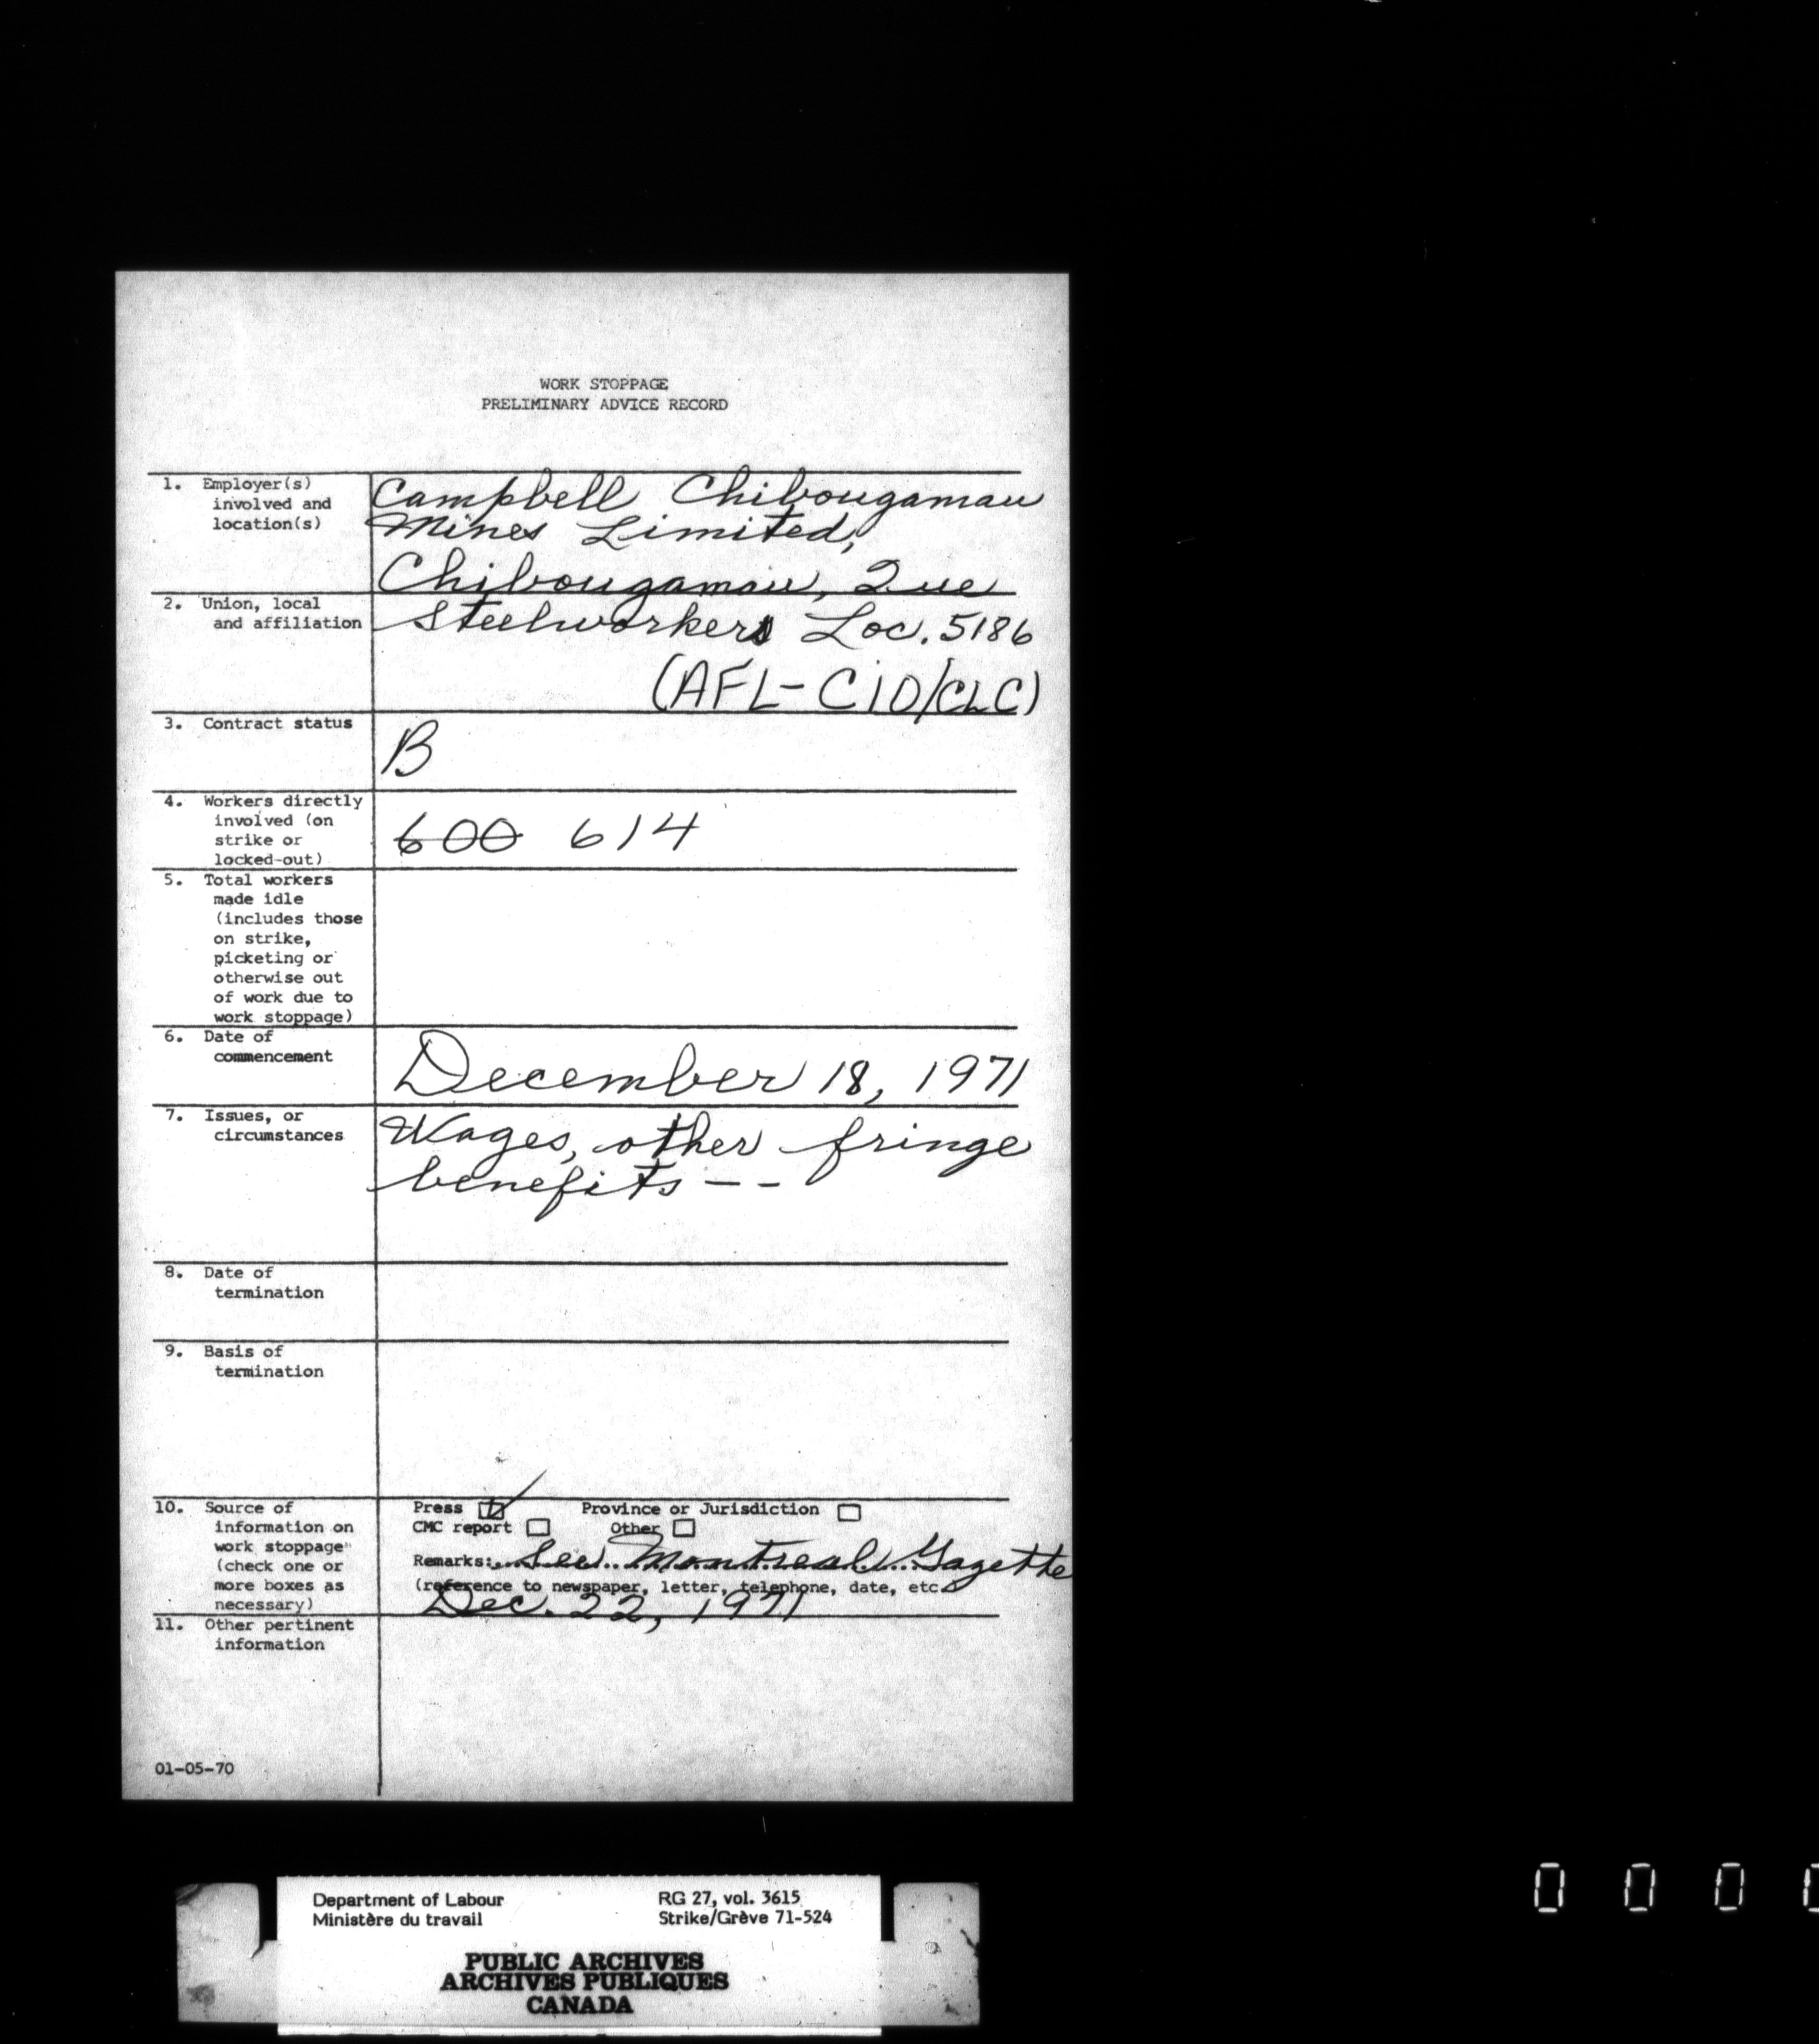 WORK STOPPAGE
PRELIMINARY ADVICE RECORD
1. Employer(s)
involved and
location(s)
Campbell Chibougamau
Mines Limited,
Chibougamau, Que
2. Union, local
and affiliation
Steelworkers Loc. 5186
(AFL-CIO/CLC)
3. Contract status
B
4. Workers directly
involved (on
strike or
locked-out)
600 614
5. Total workers
made idle
(includes those
on strike,
picketing or
otherwise out
of work due to
work stoppage)
6. Date of
commencement
December 18, 1971
7. Issues, or
circumstances
Wages, other fringe
benefits - -
8. Date of
termination
9. Basis of
termination
10. Source of
information on
work stoppage
(check one or
more boxes as
necessary)
Press Province or Jurisdiction
CMC report Other
Remarks: See Montreal Gazette
(reference to newspaper, letter, telephone, date, etc.)
Dec. 22, 1971
11. Other pertinent
information
01-05-70
Department of Labour RG 27, vol. 3615
Ministère du travail Strike/Grève 71-524
PUBLIC ARCHIVES
ARCHIVES PUBLIQUES
CANADA
0 0 0